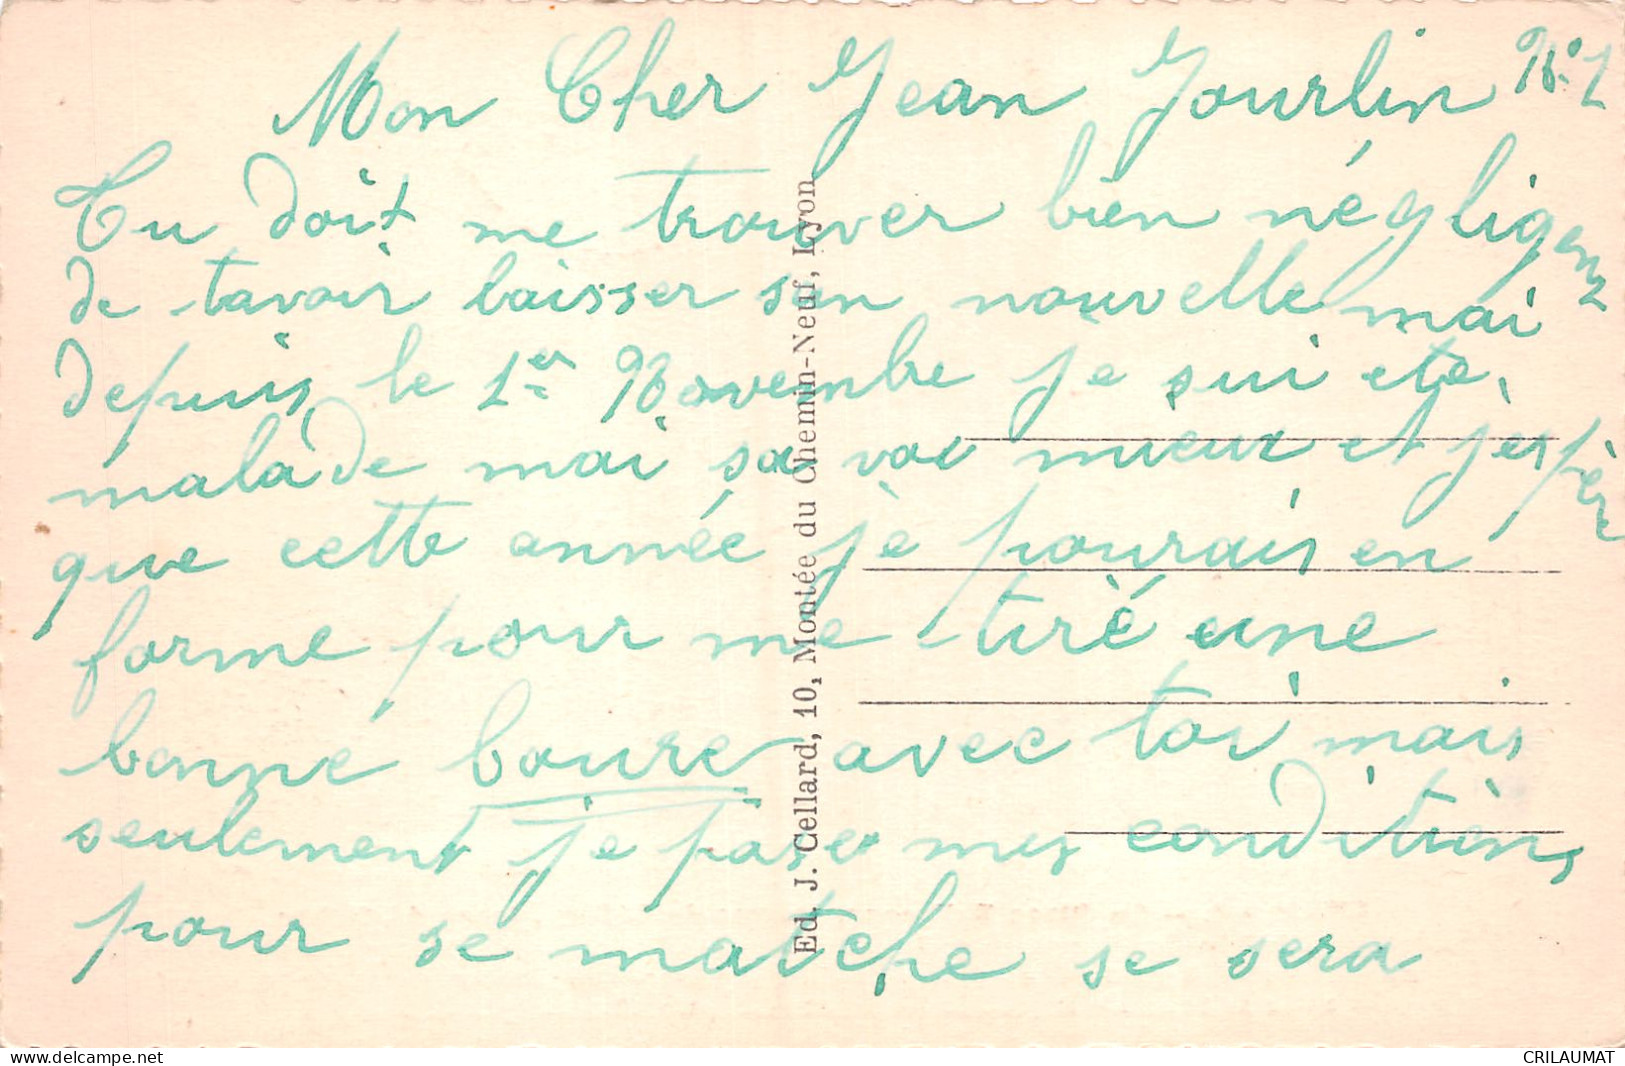 Mon Cher Jean Jourlin N° 1
Tu doit me trouver bien négligenz
de tavoir laisser san nouvelle mai
depuis le 1er Novembre je sui eté
malade mai sa vai mieux et j'espèr
que cette année je pourais en
forme pour me tiré une
bonne bourre avec toi mais
seulement je pase mes conditions
pour se matche se sera
Ed. J. Cellard, 10, Montée du Chemin-Neuf, Lyon
www.delcampe.net
CRILAUMAT